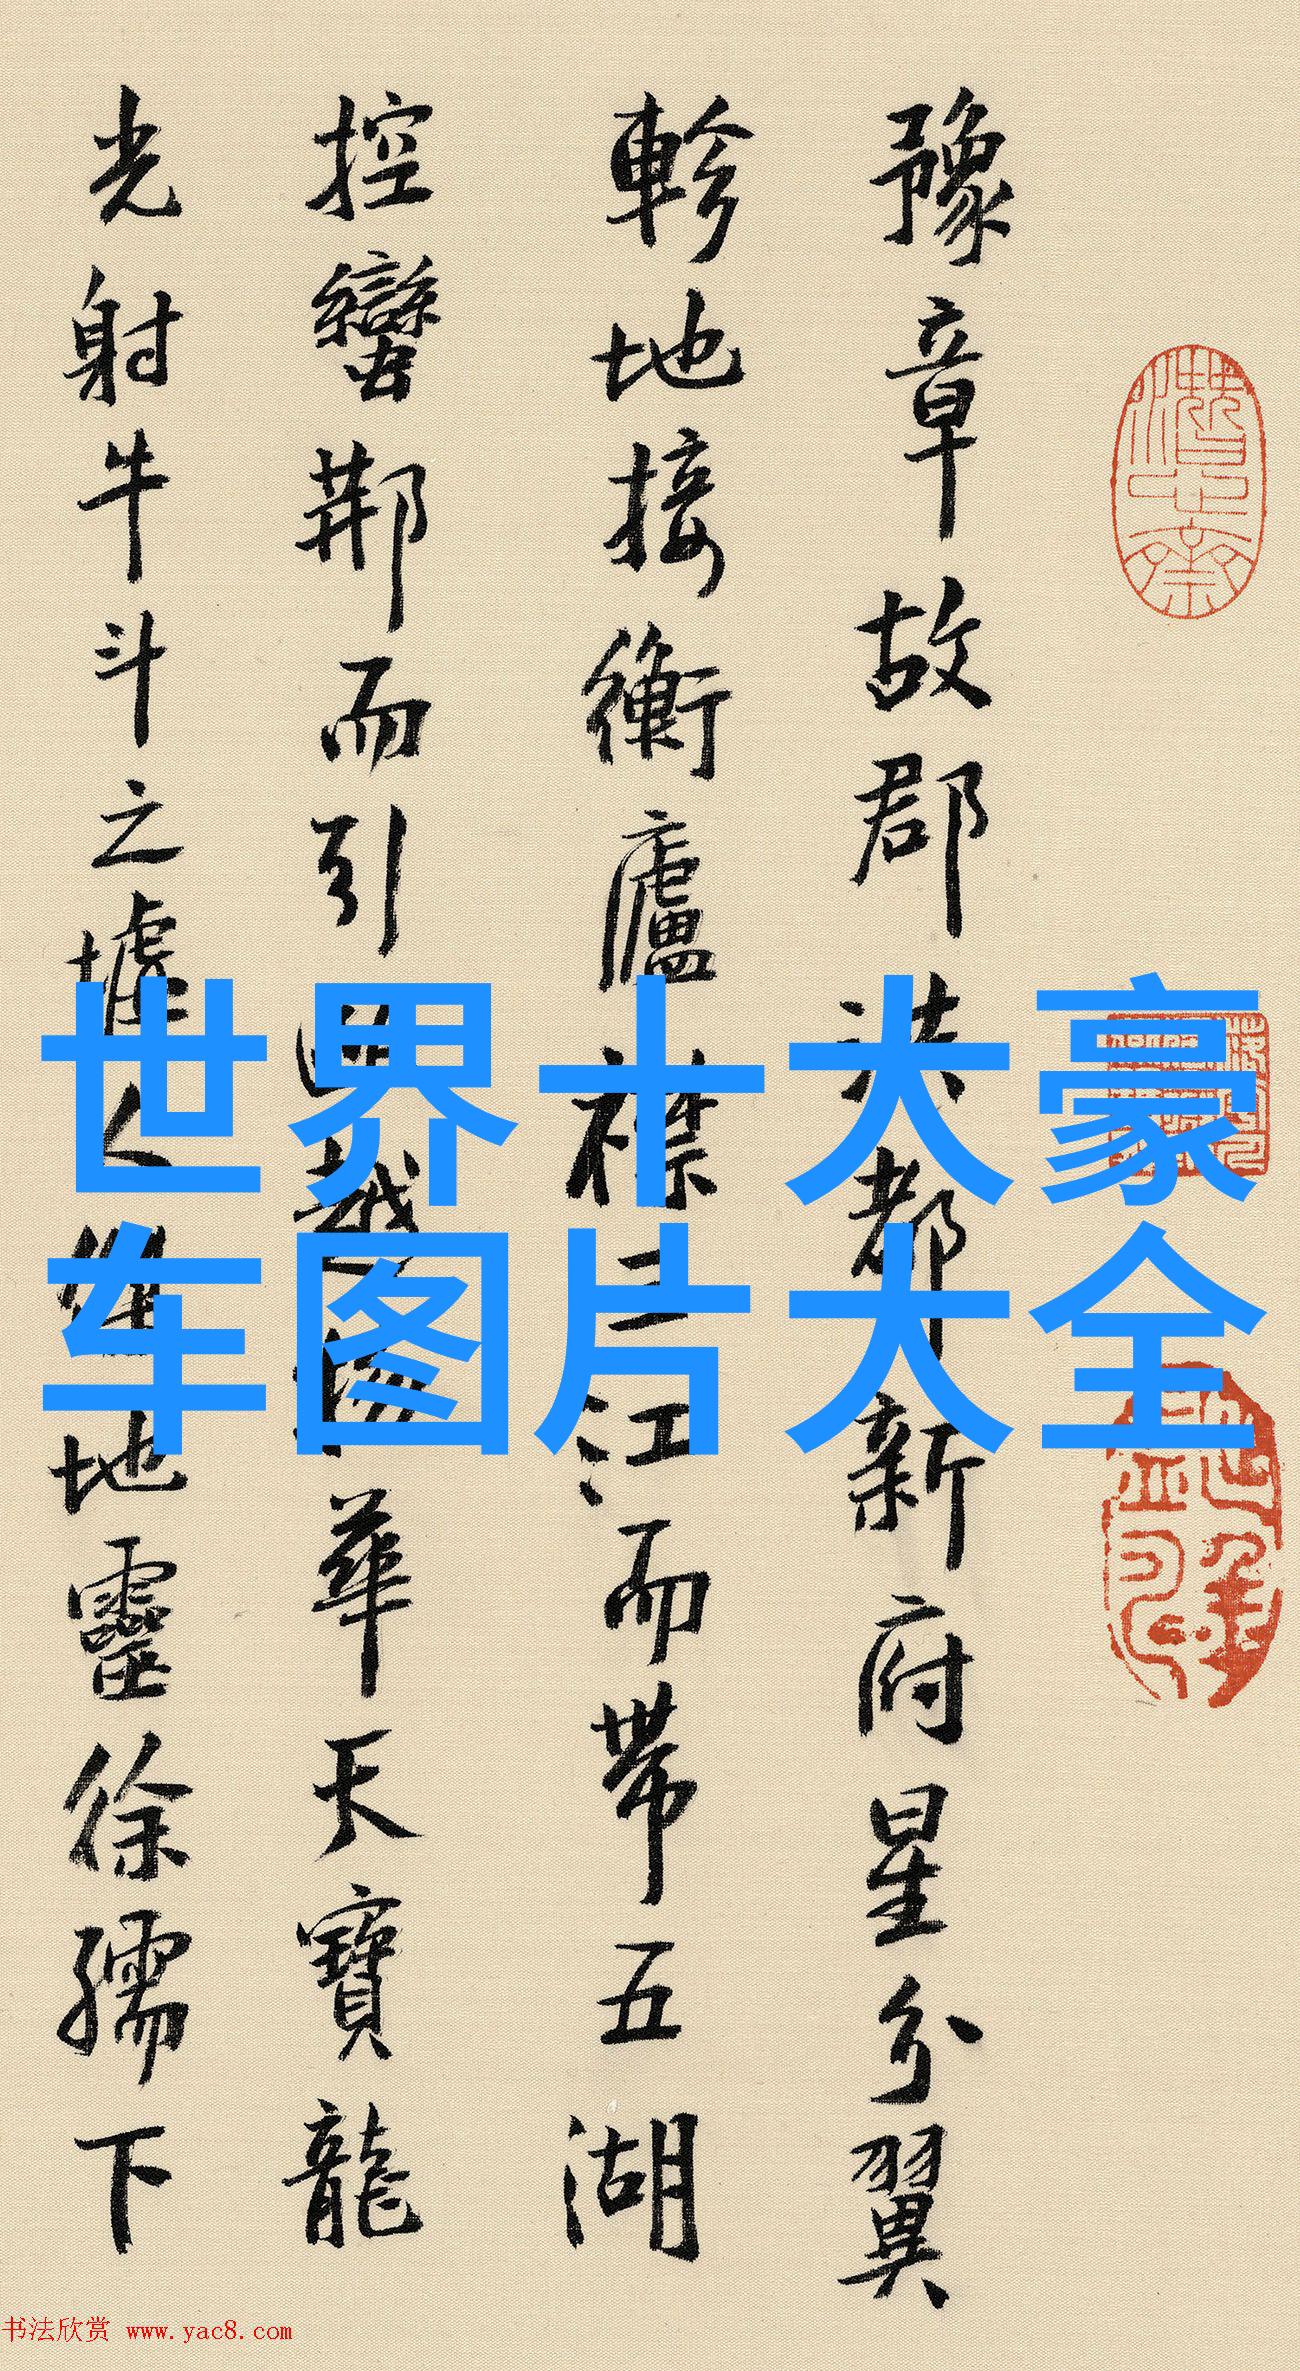 豫章故郡洪都新府星分翼
軫地接衡廬襟三江而帶五湖
控蠻荆而引越物華天寶龍
光射牛斗之墟人傑地靈徐孺下
世界十大豪
车图片大全
书法欣赏 www.yac8.com